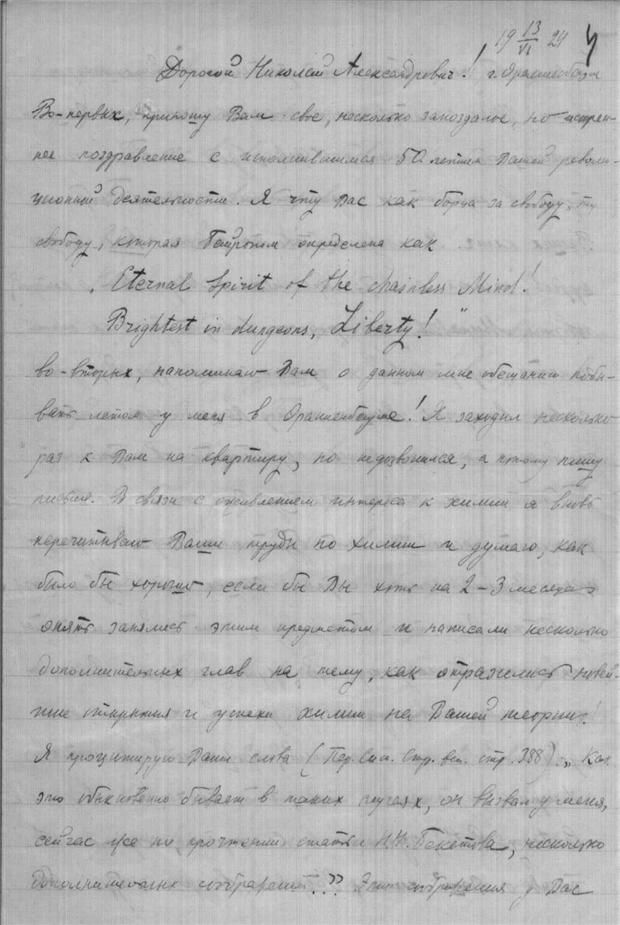 19 13/VI 24
Дорогой Николай Александрович! г. Ораниенбаум
Во-первых, приношу Вам свое, несколько запоздалое, но искрен-
нее поздравление с исполнившимся 50 летием Вашей револю-
ционной деятельности. Я чту Вас как борца за свободу, ту
свободу, которая Байроном определена как
„Eternal Spirit of the chainless Mind!
Brightest in dungeons, Liberty!"
во-вторых, напоминаю Вам о данном мне обещании побы-
вать летом у меня в Ораниенбауме! Я заходил несколько
раз к Вам на квартиру, но не дозвонился, а потому пишу
письмо. В связи с оживлением интереса к химии я вновь
перечитываю Ваши труды по химии и думаю, как
было бы хорошо, если бы Вы хоть на 2-3 месяца
опять занялись этим предметом и написали несколько
дополнительных глав на тему, как отразились новей-
шие открытия и успехи химии на Вашей теории!
Я процитирую Ваши слова (Пер. Сис. Стр. вещ. стр. 388) „Как
это обыкновенно бывает в таких случаях, он вызвал у меня,
сейчас же по прочтении статьи Н.Н. Бекетова, несколько
дополнительных соображений"?? Эти соображения у Вас